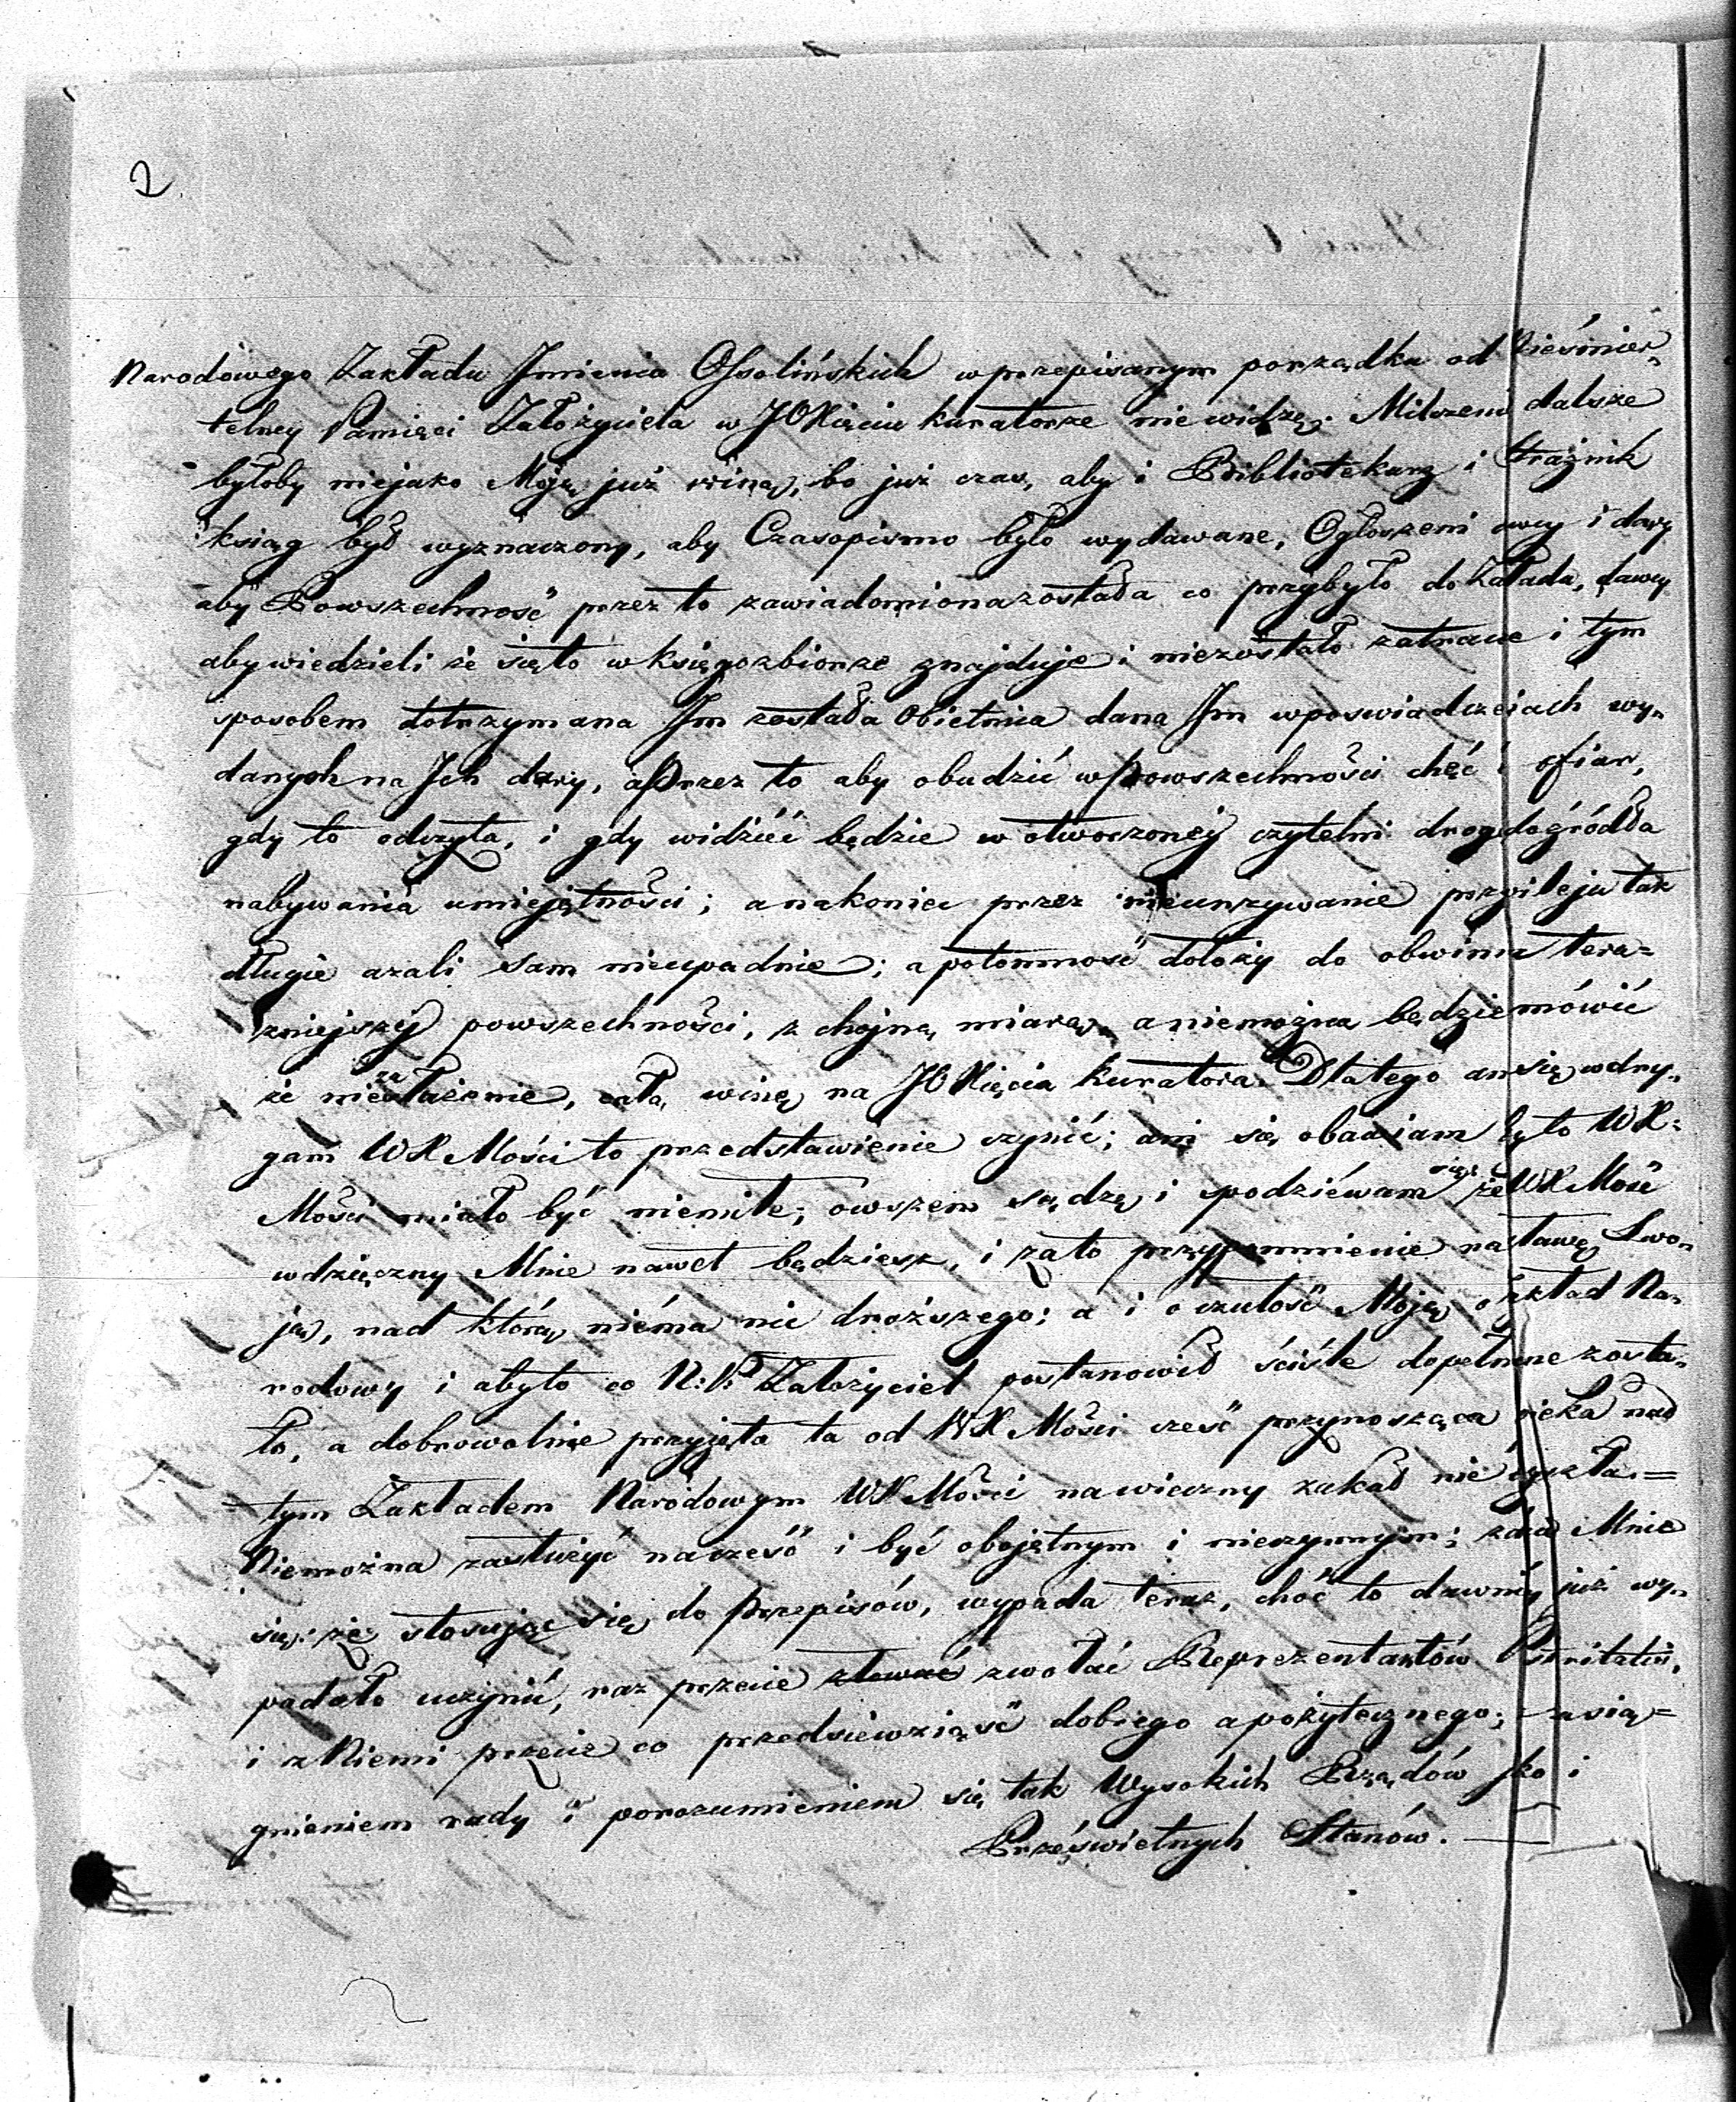 2
Narodowego Zakładu Imienia Ossolińskich w przepisanym porządku od Nieśmier„
telney Pamięci Założyciela w JOXięciu kuratorze nie widzę. Milczenie dalsze
byłoby niejako Moją już winą, bo już czas, aby i Bibliotekarz i Strażnik
ksiąg był wyznaczony, aby Czasopismo było wydawane, Ogłoszeni dawcy i dary
aby Powszechność przez to zawiadomiona została co przybyło do Zakładu, dawcy
aby wiedzieli że się to w księgozbiorze znajduje i niezostało zatracone i tym
sposobem dotrzymana Im została Obietnica dana Im w poswiadczeiach wy„
danych na Ich dary, a przez to aby obudzić w Powszechności chęć i ofiar,
gdy to odczyta, i gdy widzieć będzie w otworzonéy czytelni drogę do źródła
nabywania umiejętności; a nakoniec przez nieunzywanie przywileju tak
długie azali sam nieupadnie; a potomność dołoży do obwinie tera=
zniejszéj powszechności, z chojną miarą, a niemożna będzie mówić
że niezasłużenie, całą winę na JOXięcia kuratora. Dlatego ani się wdry„
gam WX Mości to przedstawienie czynić; ani się obawiam by to WX=
Mości miało być niemiłe; owszem sądzę i spodziéwam się że WX Mość
wdzięczny Mnie nawet będziesz, i za to przypomnienie na sławę Swo„
ję, nad którą niéma nic droższego; a i o czułość Moję o Zakład Na„
rodowy i aby to co N:P: Założyciel postanowił ściśle dopełnione zosta„
ło, a dobrowolnie przyjęta ta od WX Mości cześć przynosząca opieka nad
tym Zakładem Narodowym WX Mości na wieczny zakał nie wyszła.=
Niemożna zasłużyć na cześć i być obojętnym i nieczynnym; zdaie Mnie
się: że stosując się do Przepisów, wypada teraz, choć to dawniéy już wy„
padało uczynić, raz przecie zwołać Reprezentantów
i z Niemi przecie co przedsiewziąść dobrego a pożytecznego; zasią=
gnieniem rady i porozumieniem się tak Wysokich Rządów jko i
Prześwietnych Stanów.